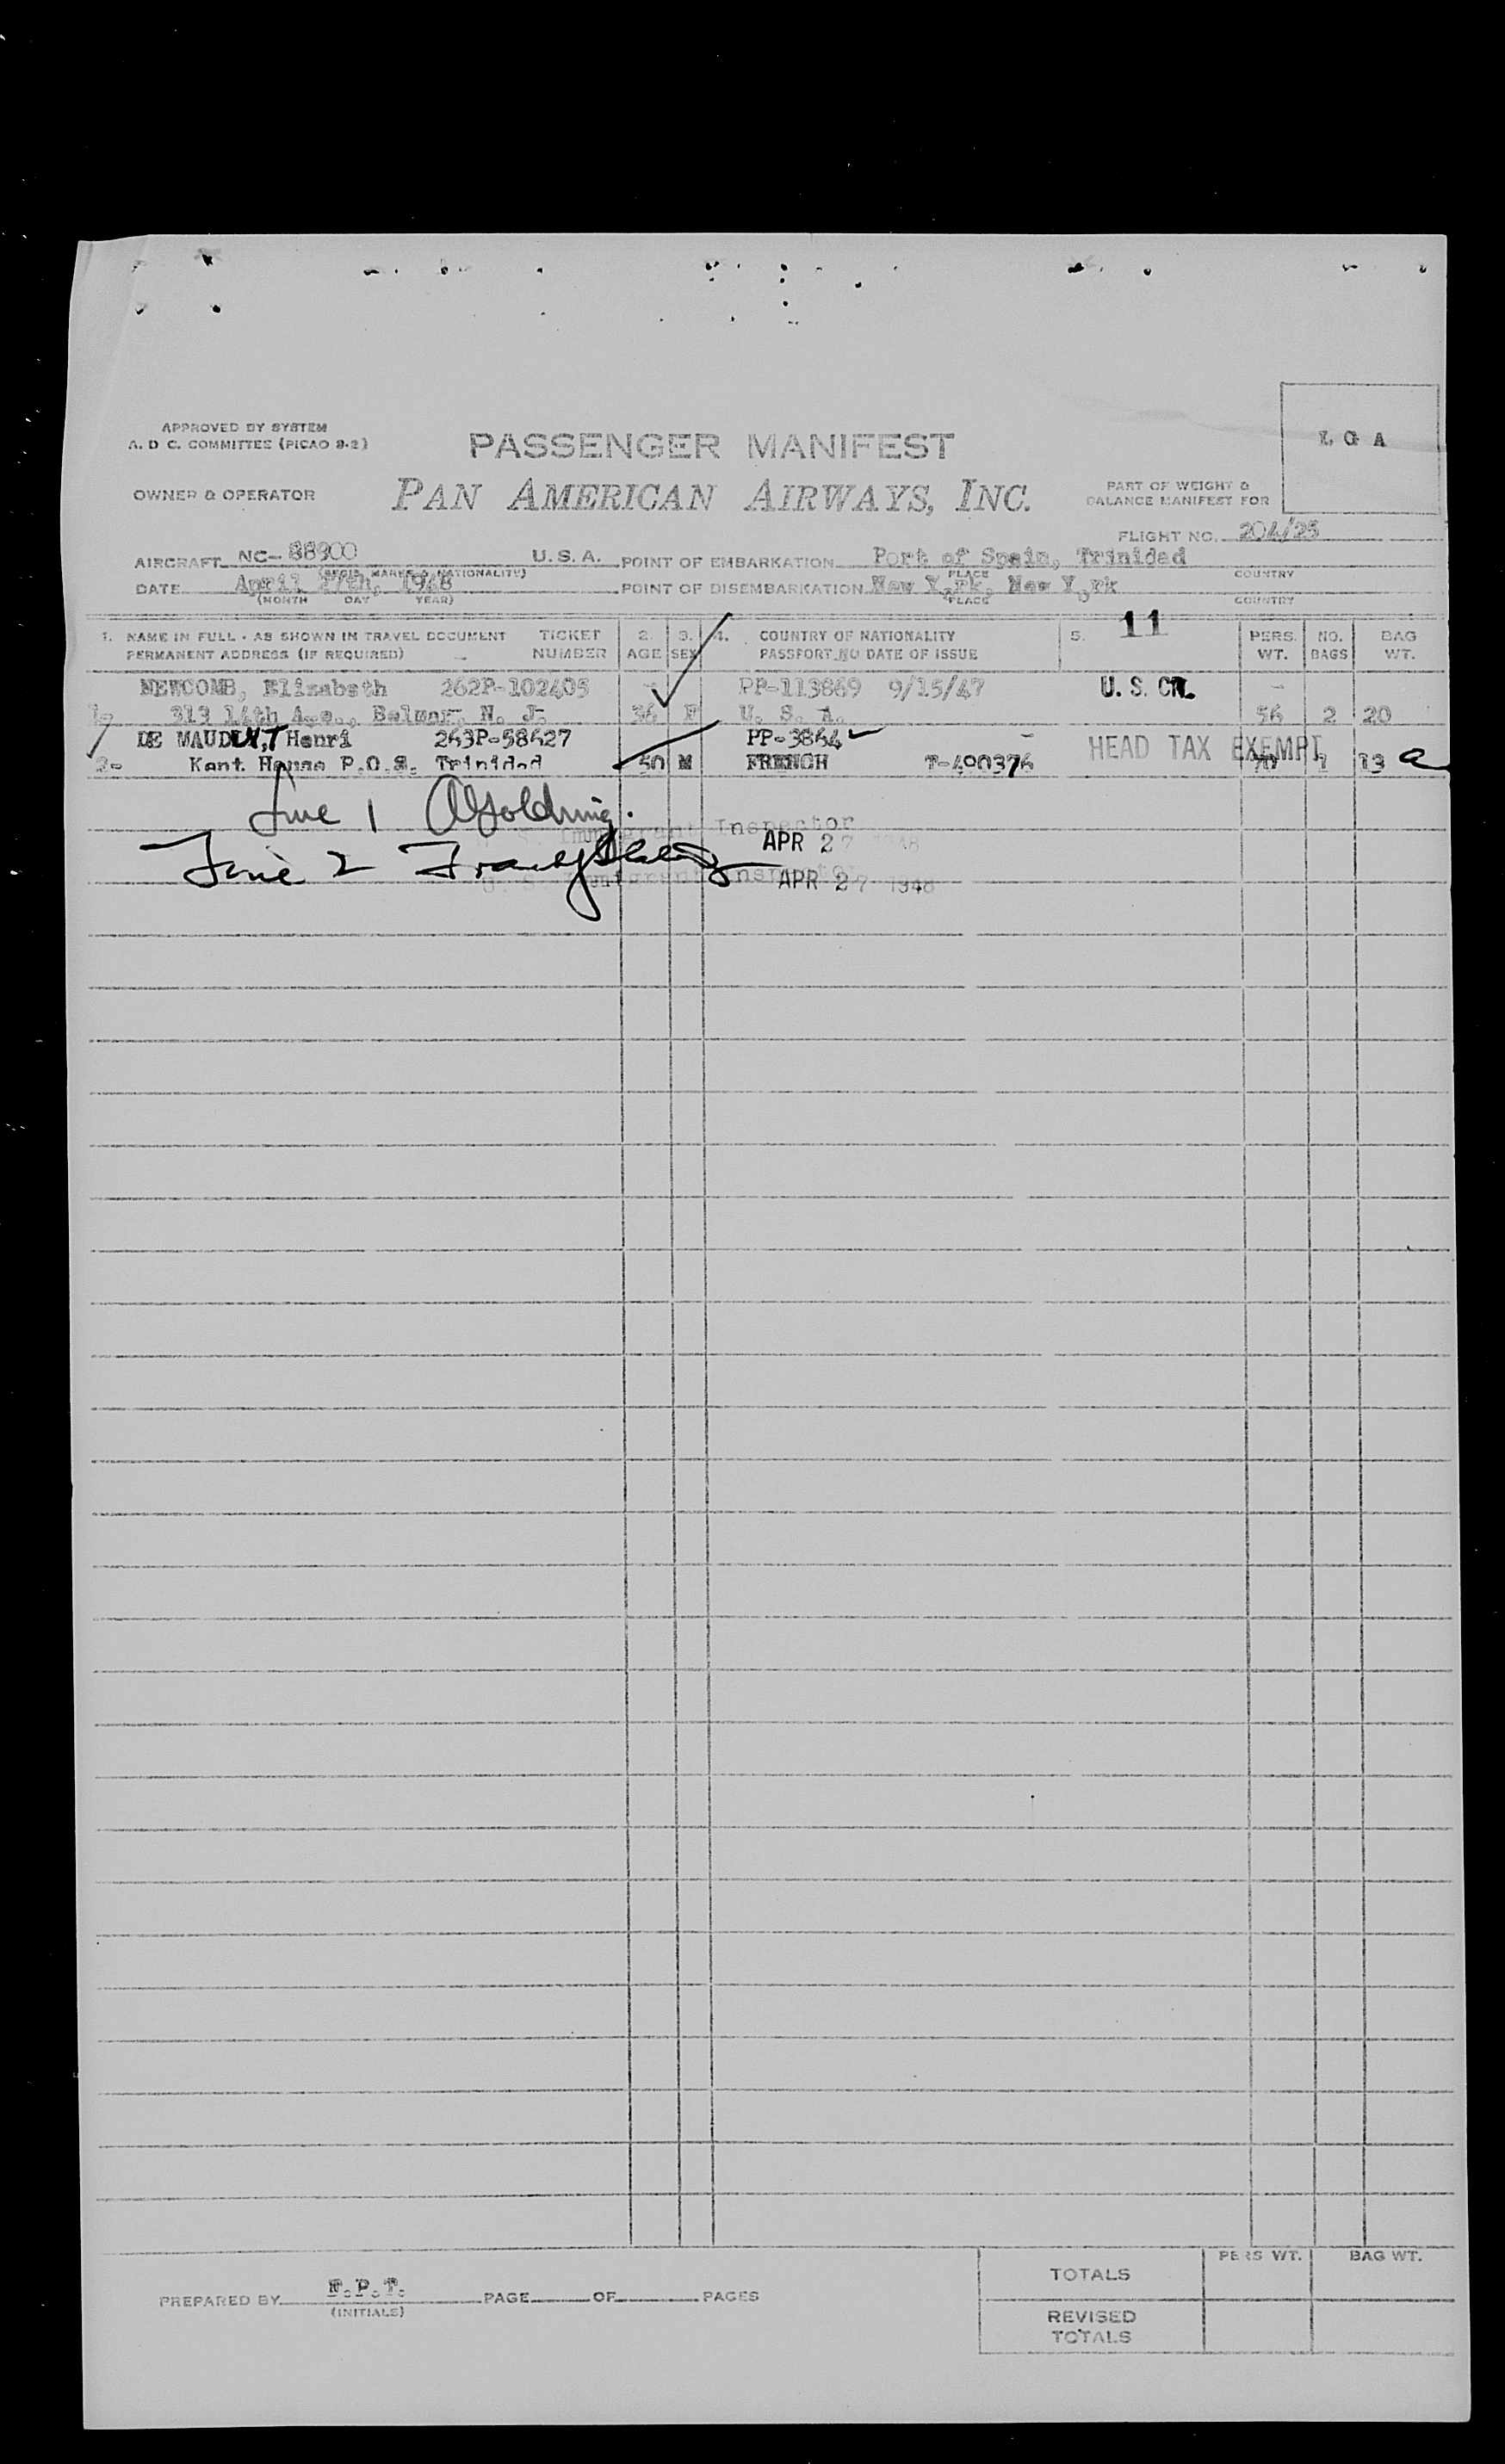 APPROVED BY SYSTEM
A. D C. COMMITTEE (PICAO 9-2)
PASSENGER MANIFEST
L G A
OWNER & OPERATOR
PAN AMERICAN AIRWAYS, INC.
PART OF WEIGHT &
BALANCE MANIFEST FOR
FLIGHT NO. 204/25
AIRCRAFT NC- 88900 U. S. A. POINT OF EMBARKATION Port of Spain, Trinidad
(REGIS. MARKS & NATIONALITY) PLACE COUNTRY
DATE April 27th, 1948 POINT OF DISEMBARKATION New York, New York
(MONTH DAY YEAR) PLACE COUNTRY
11
1. NAME IN FULL - AS SHOWN IN TRAVEL DOCUMENT TICKET 2. 3. 4. COUNTRY OF NATIONALITY 5. PERS. NO. BAG
PERMANENT ADDRESS (IF REQUIRED) NUMBER AGE SEX PASSPORT NO DATE OF ISSUE WT. BAGS WT.
NEWCOMB, Elizabeth 262P-102405 PP-113869 9/15/47 U. S. CIT.
1- 313 14th Ave., Belmar, N. J. 36 F U. S. A. 56 2 20
DE MAUDUIT, Henri 263P-58627 PP-3864
2- Kent House P.O.S. Trinidad 50 M FRENCH T-400376 HEAD TAX EXEMPT 70 1 13 a
Line 1
U. S. Immigrant Inspector
APR 27 1948
Line 2
U. S. Immigrant Inspector
APR 27 1948
PERS WT. BAG WT.
TOTALS
PREPARED BY F.P.T. PAGE OF PAGES
(INITIALS)
REVISED
TOTALS